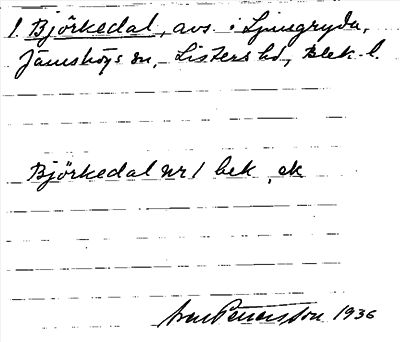 1. Björkedal, avs. i Ljungryda,
Jämshögs sn, Listers hd, Blek. l.
Björkedal nr 1 bek, ek
Pettersson 1936